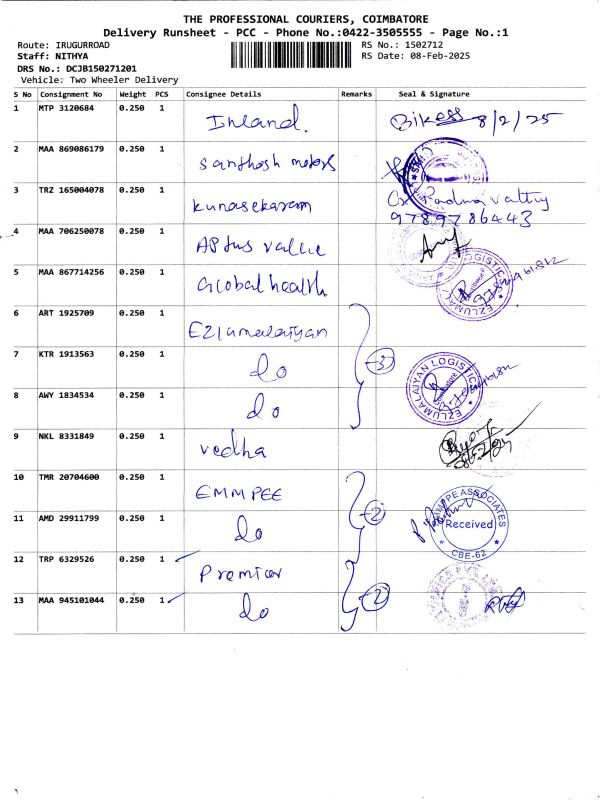 THE PROFESSIONAL COURIERS, COIMBATORE
Delivery Runsheet - PCC - Phone No.:0422-3505555 - Page No.:1
Route: IRUGURROAD
RS No.: 1502712
Staff: NITHYA
RS Date: 08-Feb-2025
DRS No.: DCJB150271201
Vehicle: Two Wheeler Delivery
S No Consignment No Weight PCS Consignee Details Remarks Seal & Signature
1 MTP 3120684 0.250 1 Inland. 8/2/25
2 MAA 869086179 0.250 1 Santhosh motors
3 TRZ 165004078 0.250 1 kunasekaram
9789786443
4 MAA 706250078 0.250 1 APtus value
5 MAA 867714256 0.250 1 Global health
6 ART 1925709 0.250 1 Ezlumalaiyan
7 KTR 1913563 0.250 1 do 3 EZLUMALAIYAN LOGISTICS
8 AWY 1834534 0.250 1 do
9 NKL 8331849 0.250 1 vedha
10 TMR 20704600 0.250 1 EMMPEE
11 AMD 29911799 0.250 1 do 2 ASSOCIATES Received CBE-62
12 TRP 6329526 0.250 1 Premier
13 MAA 945101044 0.250 1 do 2